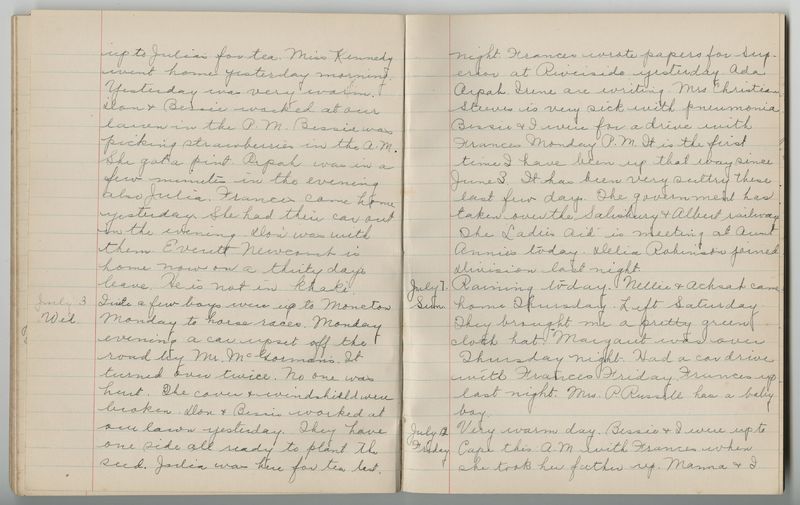 up to Julia's for tea. Miss Kennedy
went home yesterday morning.
Yesterday was very warm.
Don & Bessie worked at our
lawn in the P.M. Bessie was
picking strawberries in the A.M.
She got a pint Arpah was in a
few minutes in the evening
also Julia. Frances came home
yesterday. She had their car out
in the evening. Don was with
them Everett Newcomb is
home now on a thirty days
leave. He is not in khaki.
July 3 Quite a few boys were up to Moncton
Wed. Monday to horse races. Monday
evening a car upset off the
road by Mr. McGormans. It
turned over twice. No one was
hurt. The cover & windshield were
broken. Don & Bessie worked at
our lawn yesterday. They have
one side all ready to plant the
seed. Julia was here for tea last.
night Frances wrote papers for Sup-
erior at Riverside yesterday. Ada
Arpah Irene are writing. Mrs Christian
Steeves is very sick with pneumonia
Bessie & I were for a drive with
Frances Monday P.M. It is the first
time I have been up that way since
June 3. It has been very sultry these
last few days. The government has
taken over the Salisbury & Albert railway
The Ladies Aid is meeting at Aunt
Annie's today. Delia Robinson joined
division last night.
July 7. Raining today. Nellie & Achsah came
Sun. home Thursday. Left Saturday
They brought me a pretty green
cloth hat. Margaret was over
Thursday night. Had a car drive
with Frances Friday. Frances up
last night. Mrs. P. Russell has a baby
boy.
July 12 Very warm day. Bessie & I were up to
Friday Cape this A.M. with Frances when
she took her father up. Mamma & I